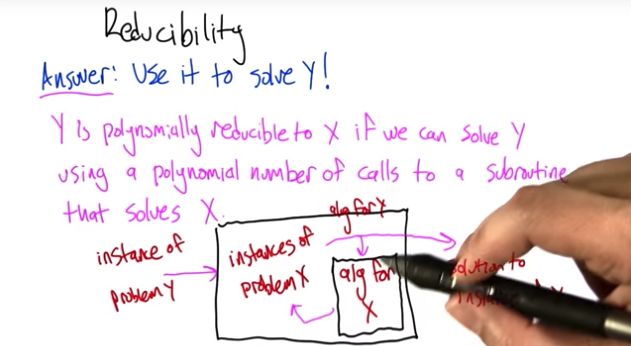 Reducibility
Answer: Use it to solve Y!
Y is polynomially reducible to X if we can solve Y
using a polynomial number of calls to a subroutine
that solves X.
alg for Y
instance of
problem Y
instances of
problem X
alg for
X
solution to